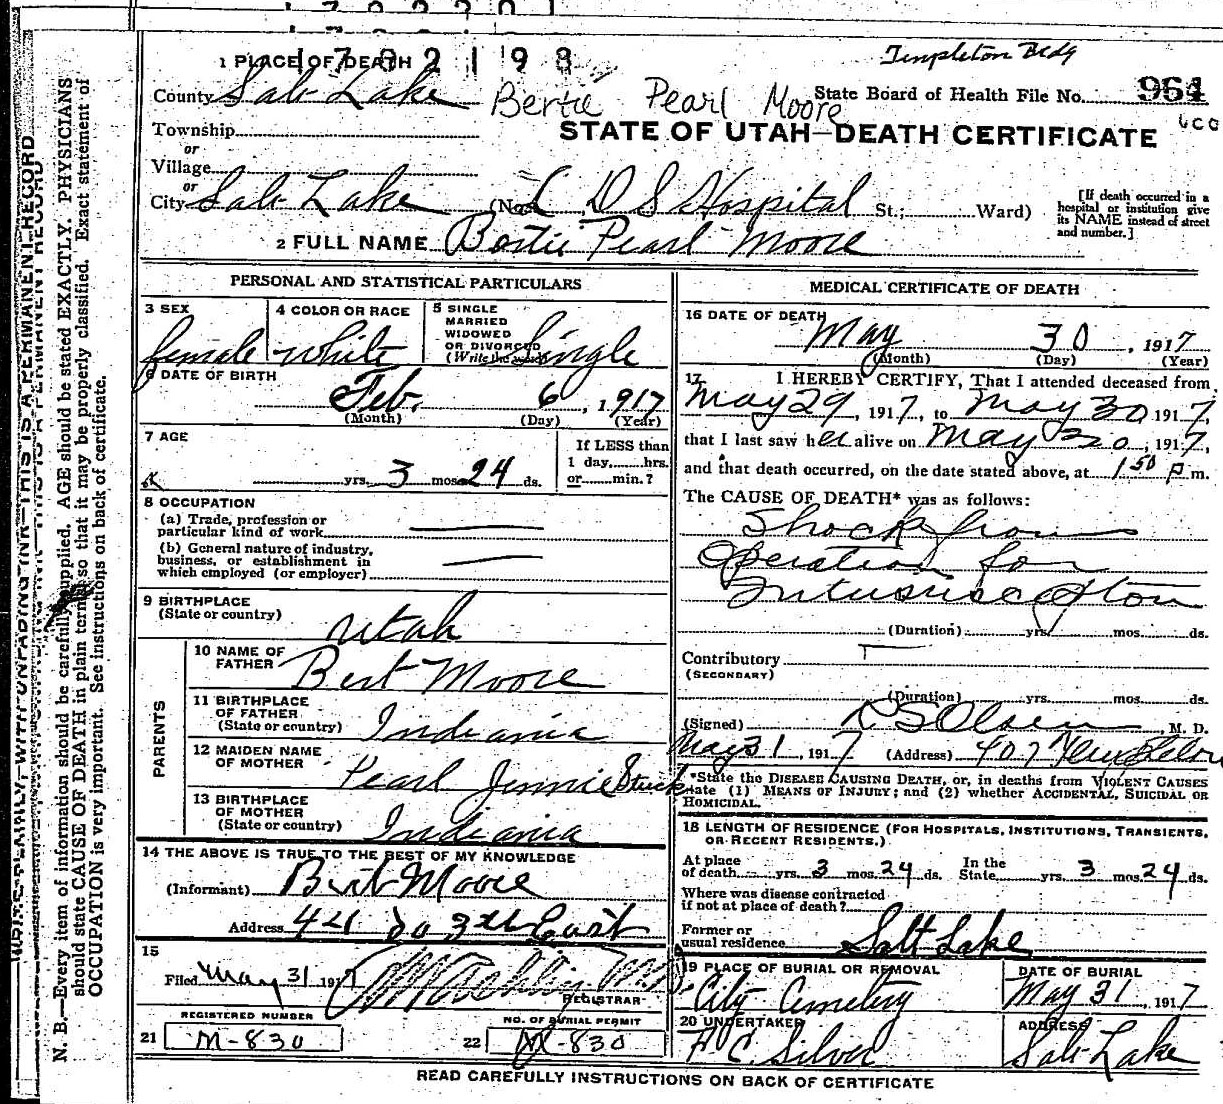 1702198
Templeton Bldg
1 PLACE OF DEATH
County Salt Lake
Bertie Pearl Moore
State Board of Health File No. 964
Township
or
Village
or
City Salt Lake (No. L D S Hospital St.; Ward)
STATE OF UTAH—DEATH CERTIFICATE
[If death occurred in a hospital or institution give its NAME instead of street and number.]
2 FULL NAME Bertie Pearl Moore
PERSONAL AND STATISTICAL PARTICULARS
3 SEX female
4 COLOR OR RACE white
5 SINGLE MARRIED WIDOWED OR DIVORCED (Write the word) Single
6 DATE OF BIRTH
Feb. 6, 1917
(Month) (Day) (Year)
7 AGE
yrs. 3 mos. 24 ds.
If LESS than
1 day,......hrs.
or......min.?
8 OCCUPATION
(a) Trade, profession or
particular kind of work
(b) General nature of industry,
business, or establishment in
which employed (or employer)
9 BIRTHPLACE
(State or country) Utah
PARENTS
10 NAME OF
FATHER Bert Moore
11 BIRTHPLACE
OF FATHER
(State or country) Indiania
12 MAIDEN NAME
OF MOTHER Pearl Jennie
13 BIRTHPLACE
OF MOTHER
(State or country) Indiania
14 THE ABOVE IS TRUE TO THE BEST OF MY KNOWLEDGE
(Informant) Bert Moore
Address 441 So 3rd East
15
Filed May 31 1917
REGISTRAR
REGISTERED NUMBER
21 M-830
NO. OF BURIAL PERMIT
22 M-830
MEDICAL CERTIFICATE OF DEATH
16 DATE OF DEATH
May 30, 1917
(Month) (Day) (Year)
17 I HEREBY CERTIFY, That I attended deceased from
May 29, 1917, to May 30 1917,
that I last saw her alive on May 30, 1917,
and that death occurred, on the date stated above, at 1 50 P m.
The CAUSE OF DEATH* was as follows:
Shock from
Operation for
Intususception
(Duration) yrs. mos. ds.
Contributory
(SECONDARY)
(Duration) yrs. mos. ds.
(Signed) Olsen M. D.
May 31, 1917 (Address) 407 Templeton
*State the DISEASE CAUSING DEATH, or, in deaths from VIOLENT CAUSES
state (1) MEANS OF INJURY; and (2) whether ACCIDENTAL, SUICIDAL OR
HOMICIDAL.
18 LENGTH OF RESIDENCE (FOR HOSPITALS, INSTITUTIONS, TRANSIENTS,
OR RECENT RESIDENTS.)
At place
of death yrs. 3 mos. 24 ds. In the State yrs. 3 mos. 24 ds.
Where was disease contracted
if not at place of death?
Former or
usual residence Salt Lake
19 PLACE OF BURIAL OR REMOVAL
City Cemetery
DATE OF BURIAL
May 31, 1917
20 UNDERTAKER
F. C. Silver
ADDRESS
Salt Lake
READ CAREFULLY INSTRUCTIONS ON BACK OF CERTIFICATE
WRITE PLAINLY, WITH UNFADING INK—THIS IS A PERMANENT RECORD
N. B.—Every item of information should be carefully supplied. AGE should be stated EXACTLY. PHYSICIANS
should state CAUSE OF DEATH in plain terms, so that it may be properly classified. Exact statement of
OCCUPATION is very important. See instructions on back of certificate.